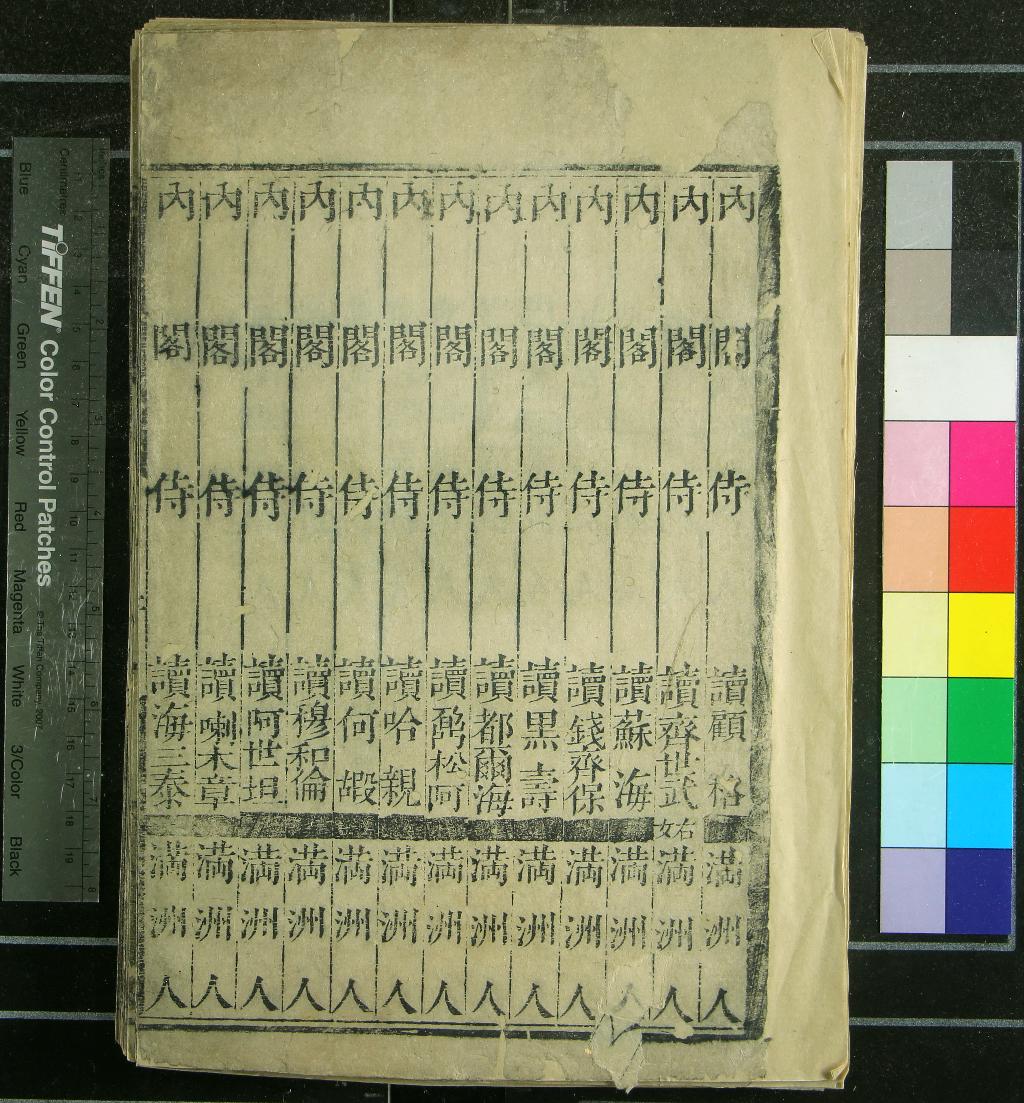 內閣侍讀顧 格 滿洲人
內閣侍讀齊世武 右女 滿洲人
內閣侍讀蘇海 滿洲人
內閣侍讀錢齊保 滿洲人
內閣侍讀黑壽 滿洲人
內閣侍讀都爾海 滿洲人
內閣侍讀松阿 滿洲人
內閣侍讀哈親 滿洲人
內閣侍讀何嘏 滿洲人
內閣侍讀穆和倫 滿洲人
內閣侍讀阿世坦 滿洲人
內閣侍讀喇木章 滿洲人
內閣侍讀海三泰 滿洲人
TIFFEN® Color Control Patches
© The Tiffen Company, 2007
Centimetres
Inches
Blue Cyan Green Yellow Red Magenta White 3/Color Black